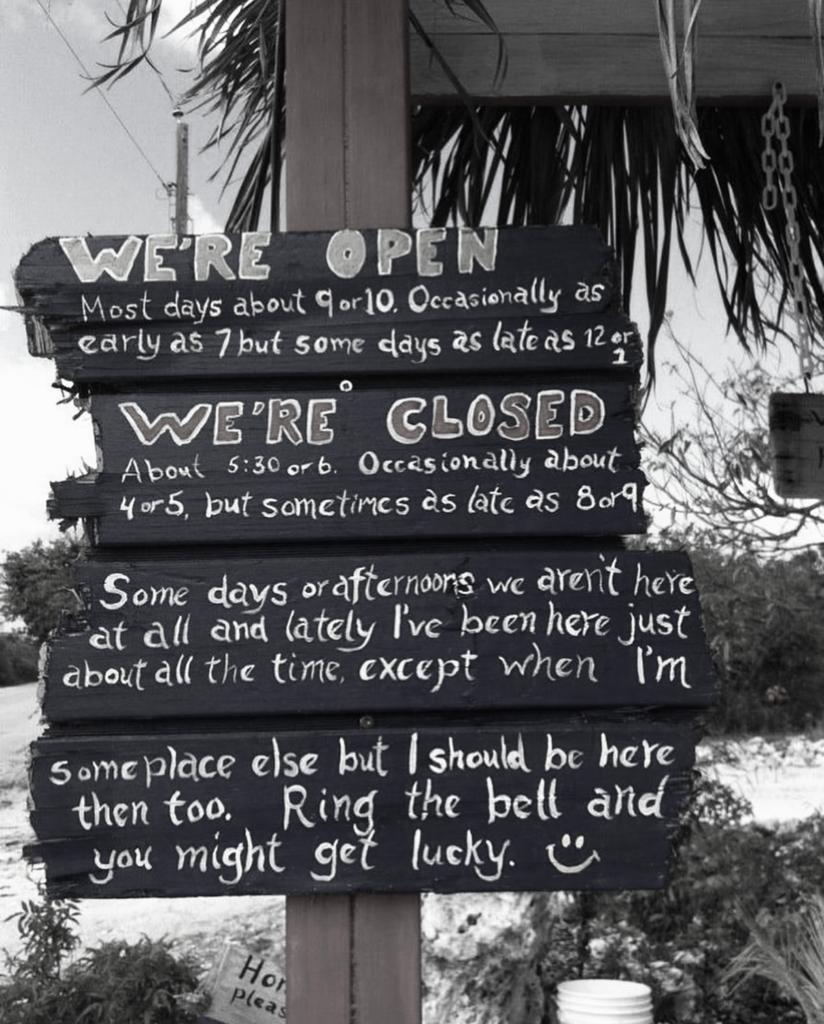 WE'RE OPEN
Most days about 9 or 10. Occasionally as
early as 7 but some days as late as 12 or 1
WE'RE CLOSED
About 5:30 or 6. Occasionally about
4 or 5, but sometimes as late as 8 or 9
Some days or afternoons we aren't here
at all and lately I've been here just
about all the time, except when I'm
someplace else but I should be here
then too. Ring the bell and
you might get lucky.